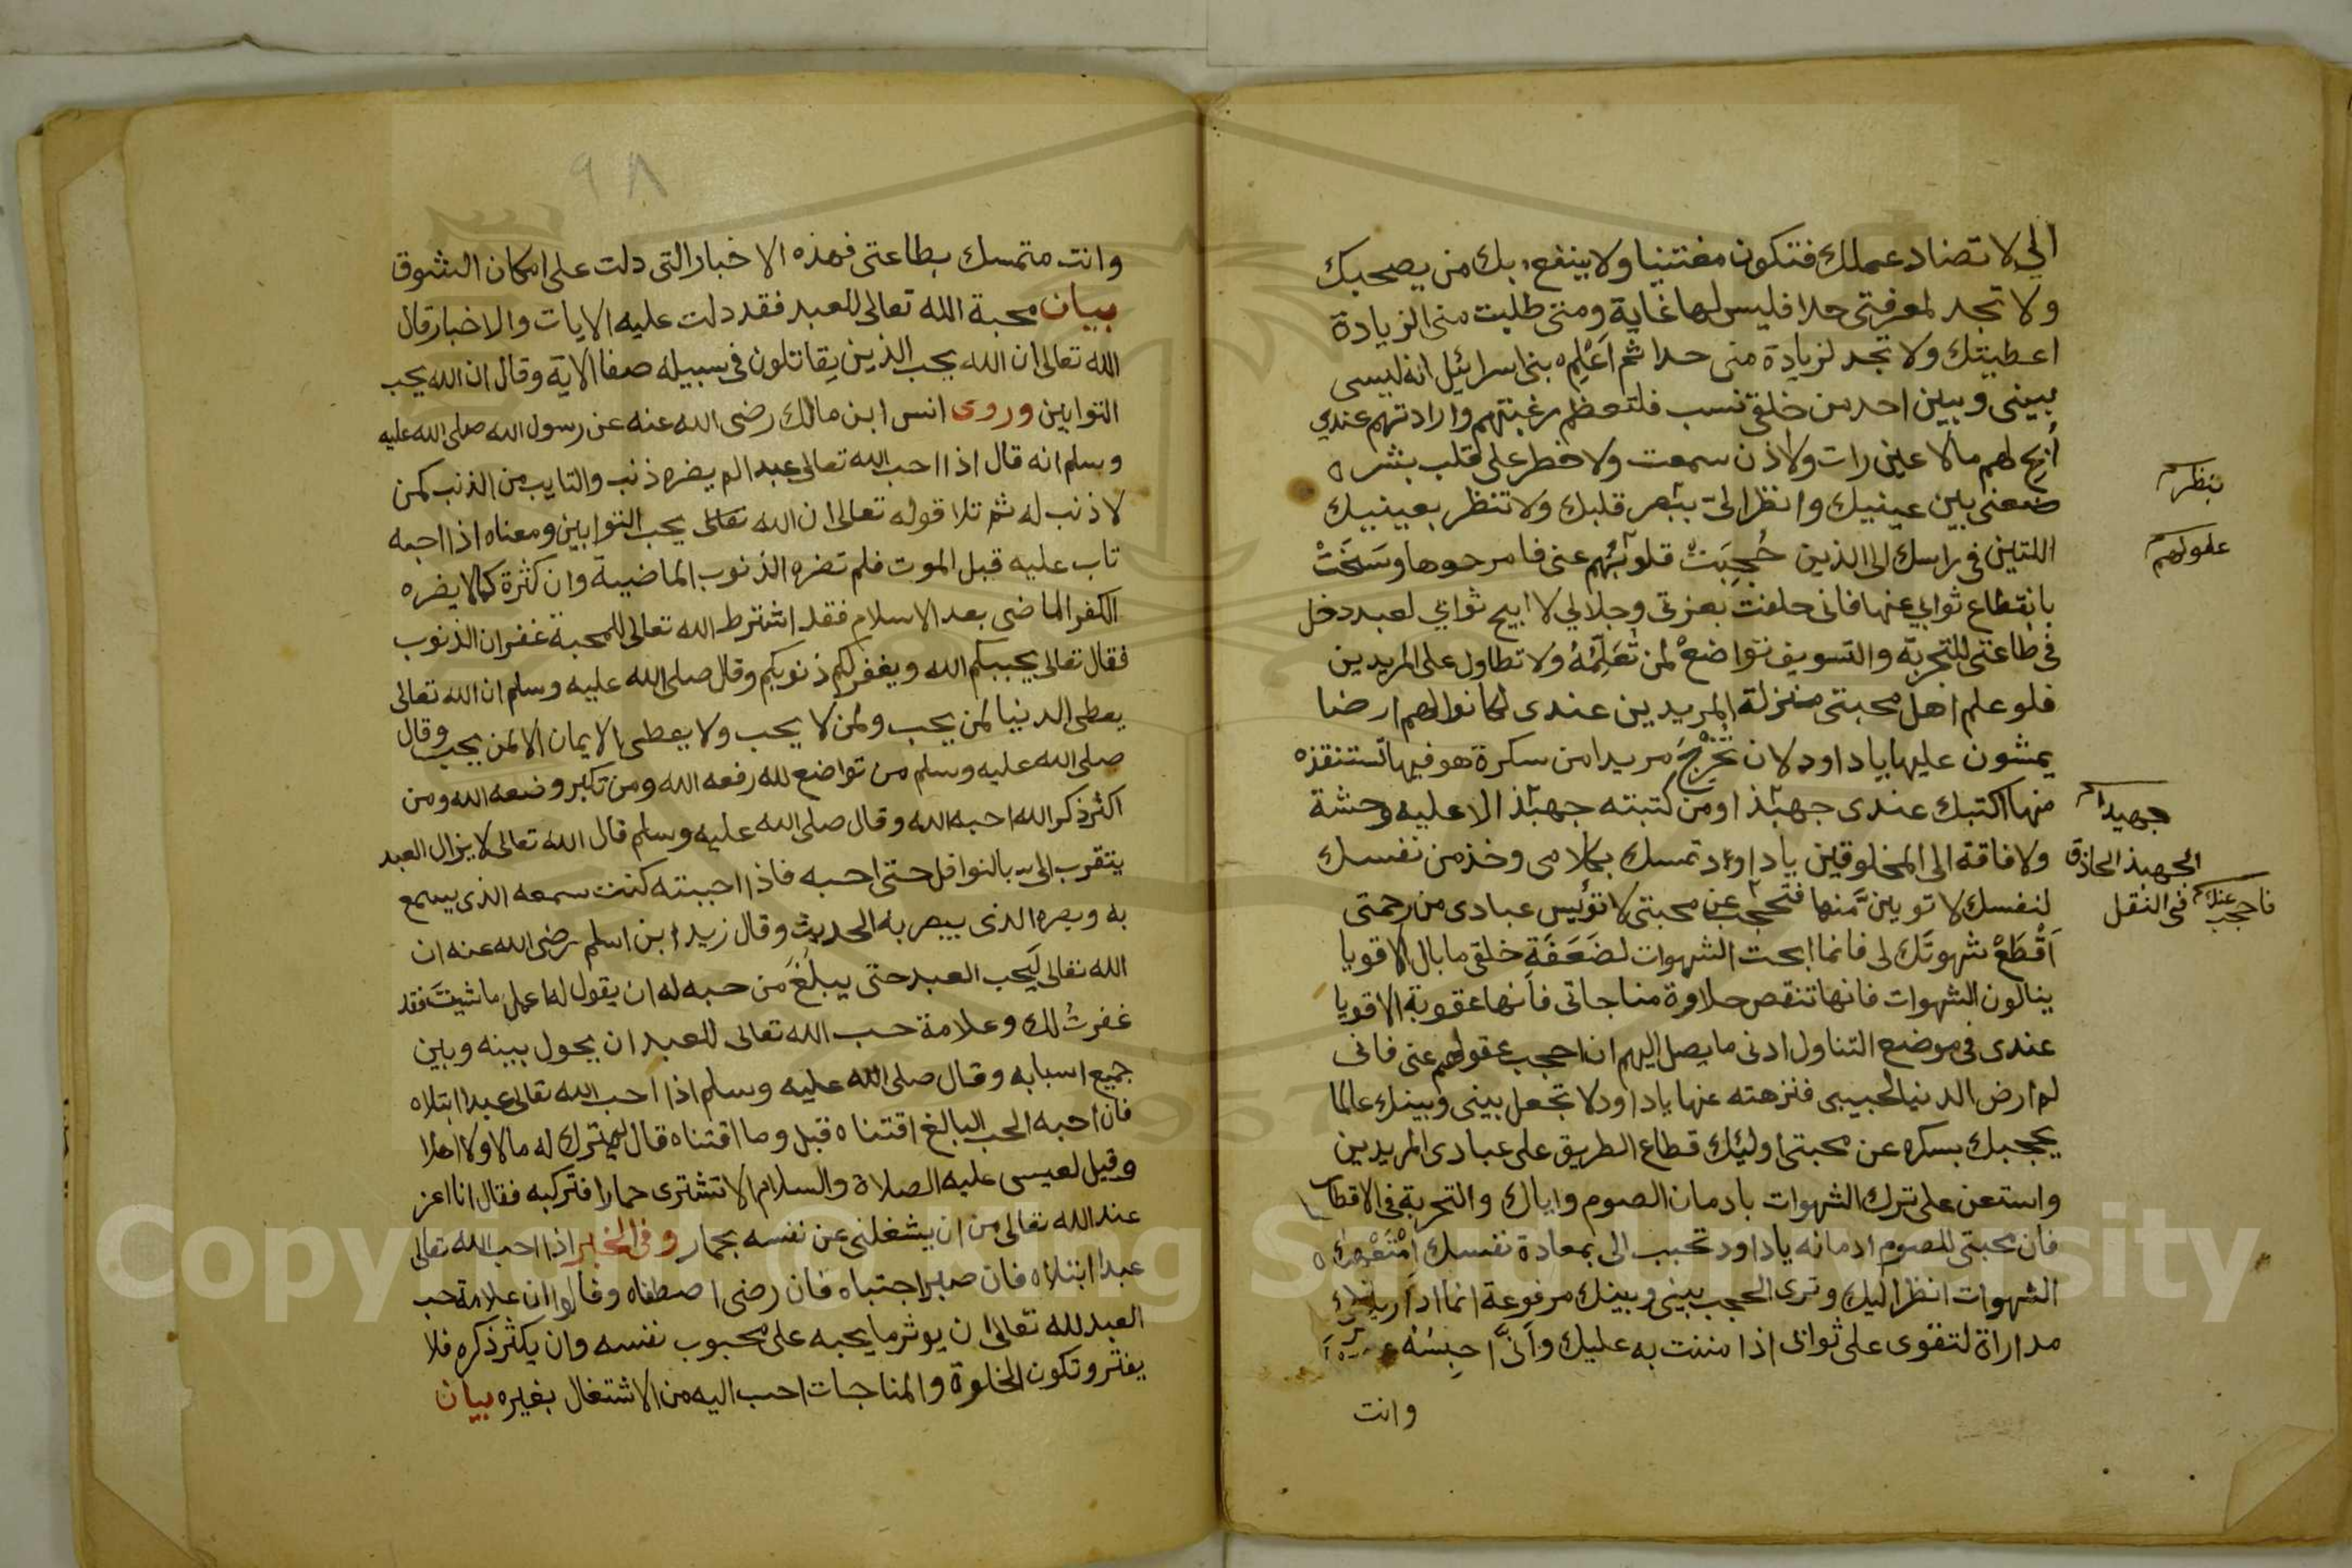 الي لا تضاد عملك فتكون مفتنينا ولا ينتفع بك من يصحبك
ولا تجد لمعرفتى حدا فليس لها غاية ومتى طلبت منى الزيادة
اعطيتك ولا تجد لزيادة منى حدا ثم اَعْلِم بنى اسرائيل انه ليسى
بينى وبين احد من خلقى نسب فلتعظم رغبتهم وارادتهم عندي
أبح لهم مالا عين رات ولا اذن سمعت ولا خطر على قلب بشر ه
ضعنى بين عينيك وانظر الىّ ببصر قلبك ولا تنظر بعينيك
اللتين فى راسك الى الذين حُجِبَتْ قلوبُهم عنى فامرحوها وسَخَتْ
بانقطاع ثوابي عنها فانى حلفت بعزتى وجلالي لا ابيح ثوابي لعبد دخل
فى طاعتى للتجربة والتسويف تواضعْ لمن تُعَلِّمُهُ ولا تطاول على المريدين
فلو علم اهل محبتى منزلة المريدين عندى لكانوا لهم ارضا
يمشون عليها يا داود لان تُخْرِجَ مريدا من سكرة هو فيها تستنقذه
منها اكتبك عندى جهبذا ومن كتبته جهبذا لا عليه وحشة
ولا فاقة الى المخلوقين يا داود تمسك بكلامى وخذ من نفسك
لنفسك لا توتينَّ منها فتحجب عن محبتى لا تؤيس عبادى من رحمتى
اَقْطَعْ شهوتَك لى فانما ابحت الشهوات لضَعَفَةِ خلقى ما بال الاقويا
ينالون الشهوات فانها تنقص حلاوة مناجاتى فانها عقوبة الاقويا
عندى فى موضع التناول ادنى ما يصل اليهم ان احجب عقولهم عنى فانى
لم ارض الدنيا لحبيبى فنزهته عنها يا داود لا تجعل بينى وبينك عالما
يحجبك بسكره عن محبتى اوليك قطاع الطريق على عبادى المريدين
واستعن على ترك الشهوات بادمان الصوم واياك والتجربة فى الافطار
فان محبتى للصوم ادمانه يا داود تحبب الى بمعاداة نفسك امْنَعْها
الشهوات انظر اليك وترى الحجب بينى وبينك مرفوعة انما اداريك
مداراة لتقوى على ثوابى اذا مننت به عليك وانّى احبسُهُ
وانت
بنظر
عقولهم
جهيدا
الجهبذ الحاذق
فى النقل
فاحجب عنك
٩٨
وانت متمسك بطاعتى فهذه الاخبار التى دلت على امكان الشوق
بيان محبة الله تعالى للعبد فقد دلت عليه الايات والاخبار قال
الله تعالى ان الله يحب الذين يقاتلون فى سبيله صفا الاية وقال ان الله يحب
التوابين وروى انس ابن مالك رضى الله عنه عن رسول الله صلى الله عليه
وسلم انه قال اذا احب الله تعالى عبدا لم يضره ذنب والتايب من الذنب كمن
لا ذنب له ثم تلا قوله تعالى ان الله تعالى يحب التوابين ومعناه اذا احبه
تاب عليه قبل الموت فلم تضره الذنوب الماضية وان كثرة كما لا يضره
الكفر الماضى بعد الاسلام فقد اشترط الله تعالى للمحبة غفران الذنوب
فقال تعالى يحببكم الله ويغفر لكم ذنوبكم وقال صلى الله عليه وسلم ان الله تعالى
يعطى الدنيا لمن يحب ولمن لا يحب ولا يعطى الايمان الا لمن يحب وقال
صلى الله عليه وسلم من تواضع لله رفعه الله ومن تكبر وضعه الله ومن
اكثر ذكر الله احبه الله وقال صلى الله عليه وسلم قال الله تعالى لا يزال العبد
يتقرب الى بالنوافل حتى احبه فاذا احببته كنت سمعه الذى يسمع
به وبصره الذى يبصر به الحديث وقال زيد ابن اسلم رضى الله عنه ان
الله تعالى لَيحب العبد حتى يبلَغَ من حبه له ان يقول له اعمل ما شيتَ فقد
غفرتُ لك وعلامة حب الله تعالى للعبد ان يحول بينه وبين
جميع اسبابه وقال صلى الله عليه وسلم اذا احب الله تعالى عبدا ابتلاه
فان احبه الحب البالغ اقتناه قيل وما اقتناه قال لم يترك له مالا ولا اهلا
وقيل لعيسى عليه الصلاة والسلام الا تشترى حمارا فتركبه فقال انا اعز
عند الله تعالى من ان يشغلنى عن نفسه بحمار وفى الخبر اذا احب الله تعالى
عبدا ابتلاه فان صبر اجتباه فان رضى اصطفاه وقالوا ان علامة حب
العبد لله تعالى ان يوثر ما يحبه على محبوب نفسه وان يكثر ذكره فلا
يفتر وتكون الخلوة والمناجات احب اليه من الاشتغال بغيره بيان
Copyright © King Saud University
1957